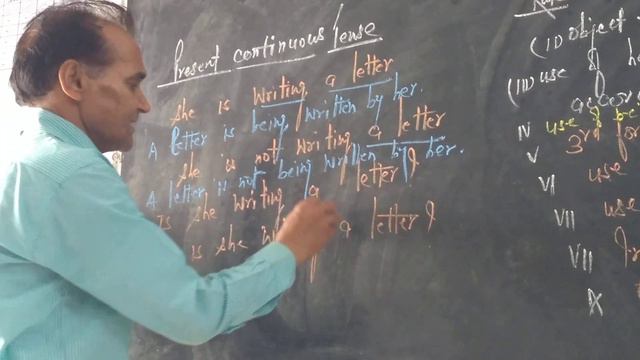 Present continuous Tense
She is writing a letter
A letter is being written by her.
She is not writing a letter
A letter is not being written by her.
Is she writing a letter ?
is she a letter ?
Rul
(I) object
(II) use
accor
IV use of be
V 3rd for
VI use
VII use
VIII
X